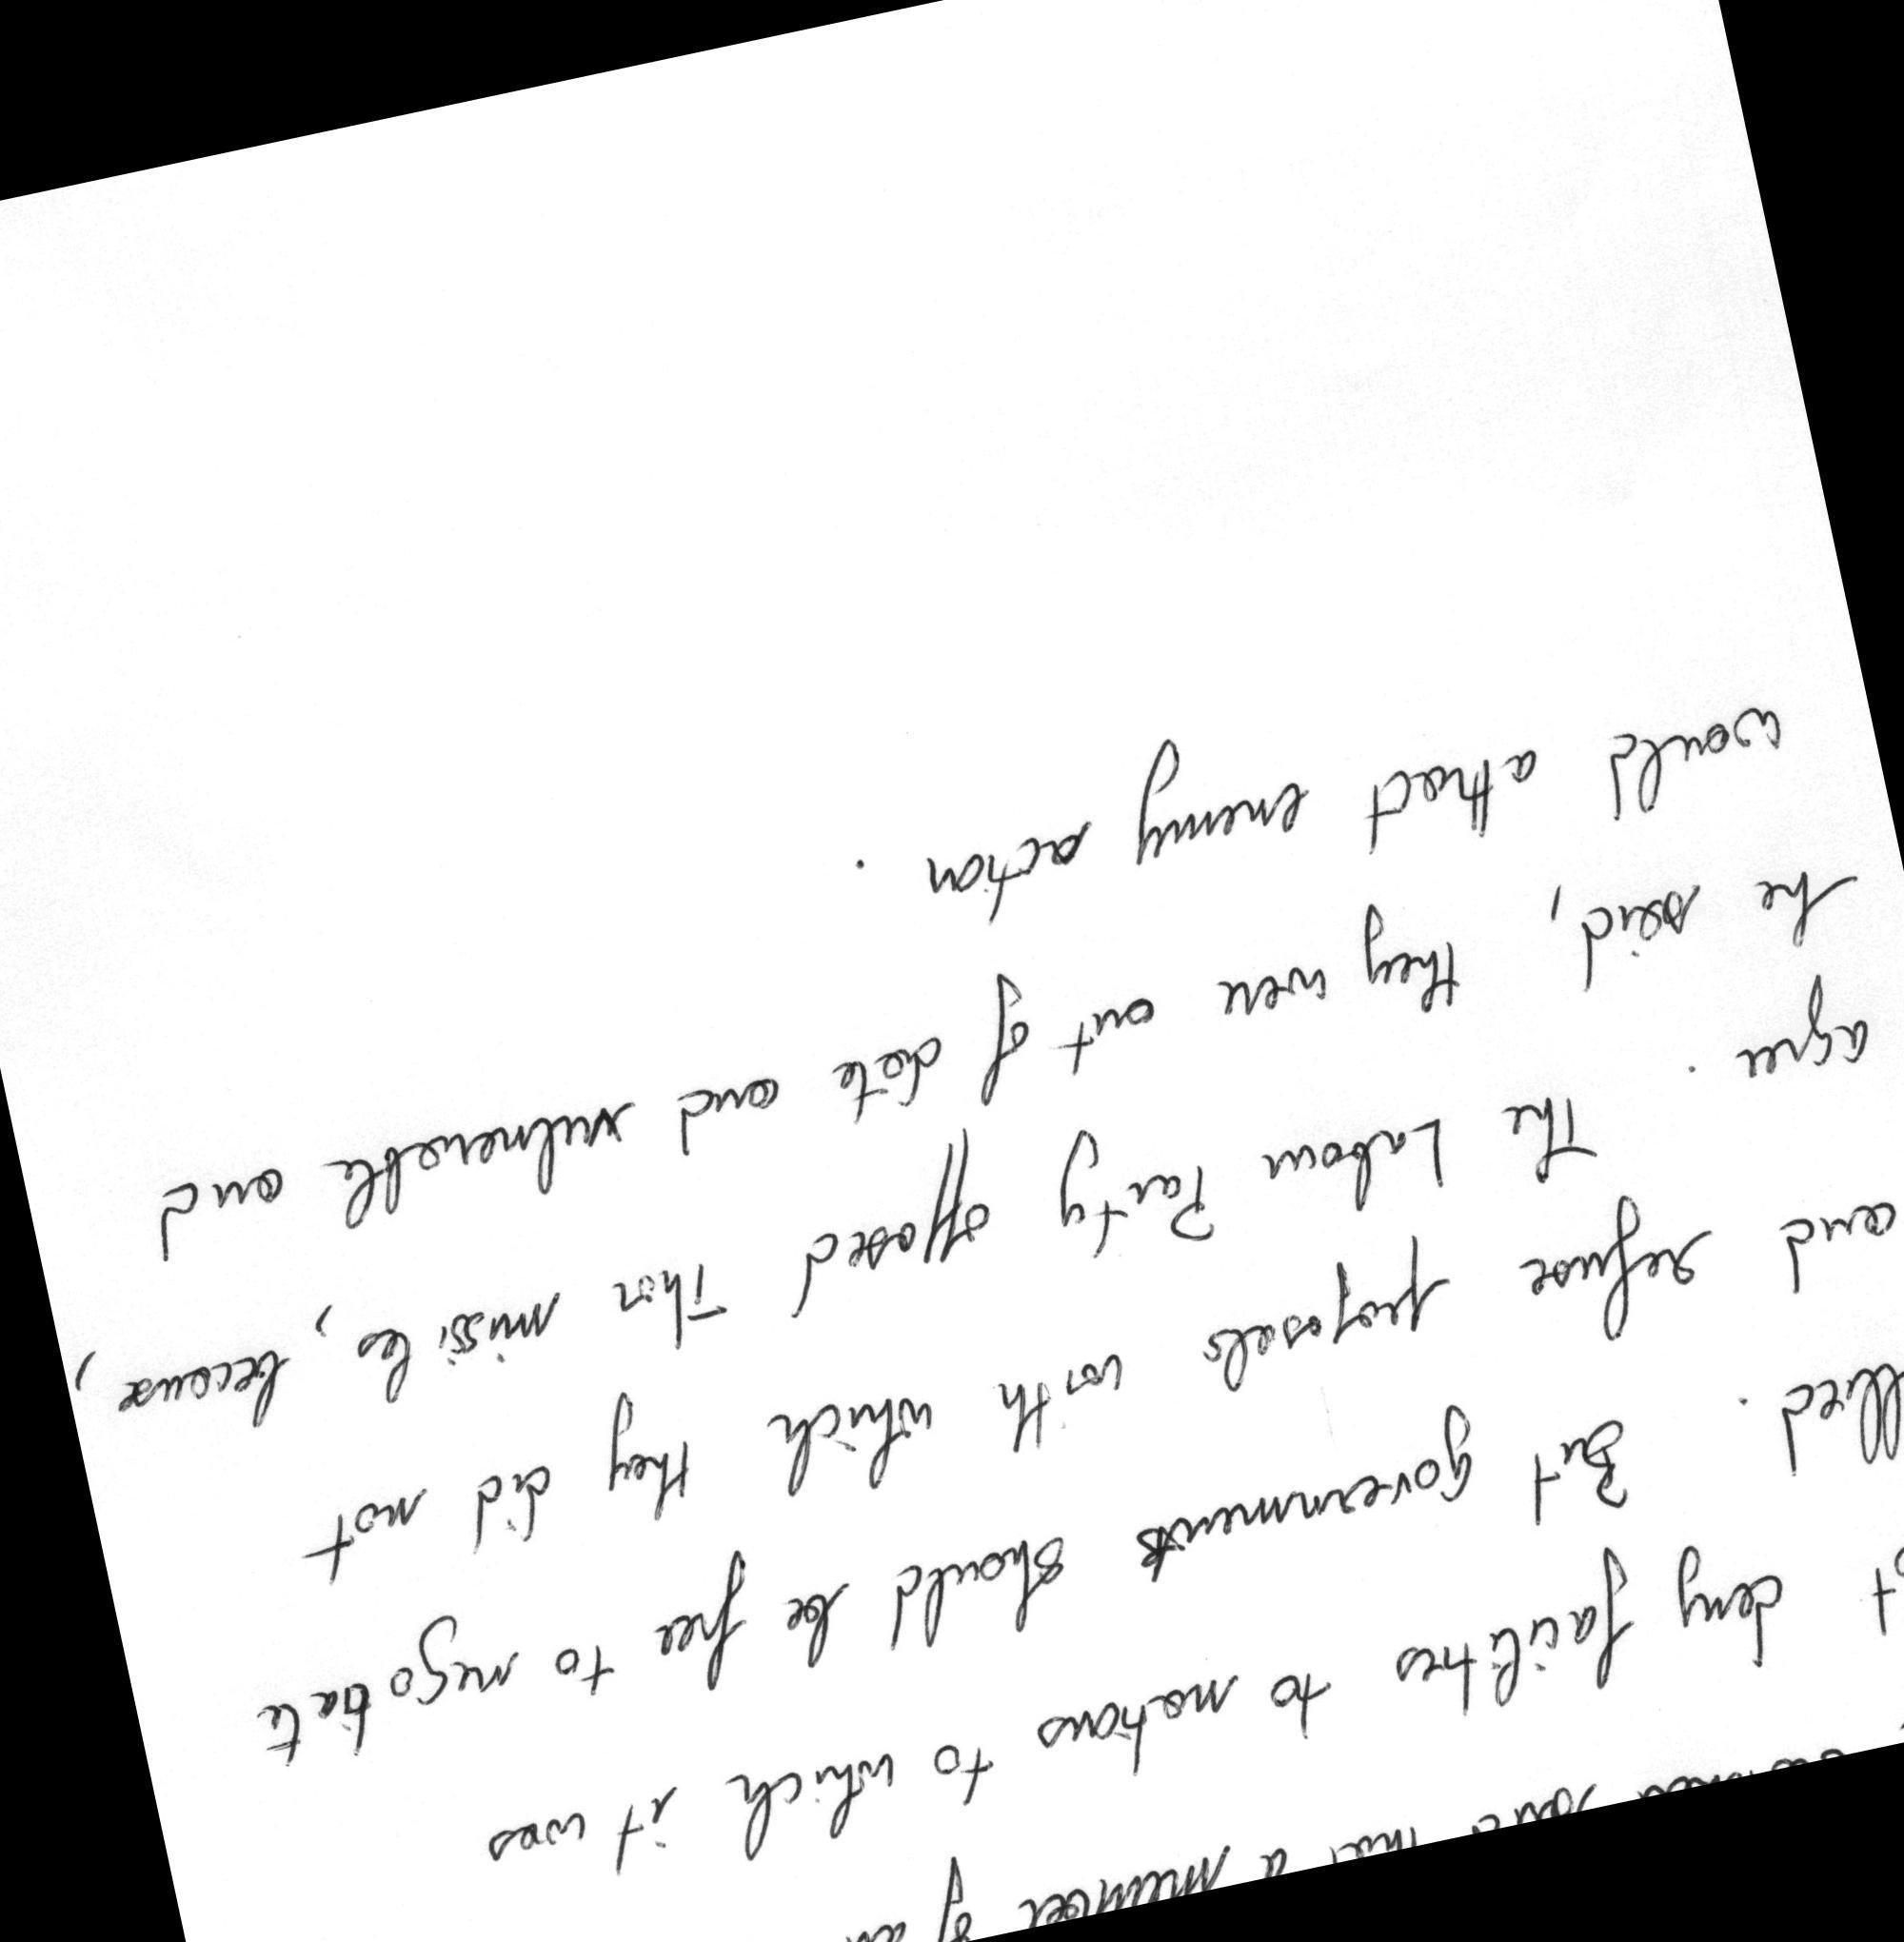 said that a member of
t deny facilities to nations to which it was
llied. But governments should be free to negotiate
and refuse proposals with which they did not
agree. The Labour Party opposed Thor missiles, because,
he said, they were out of date and vulnerable and
would attract enemy action.